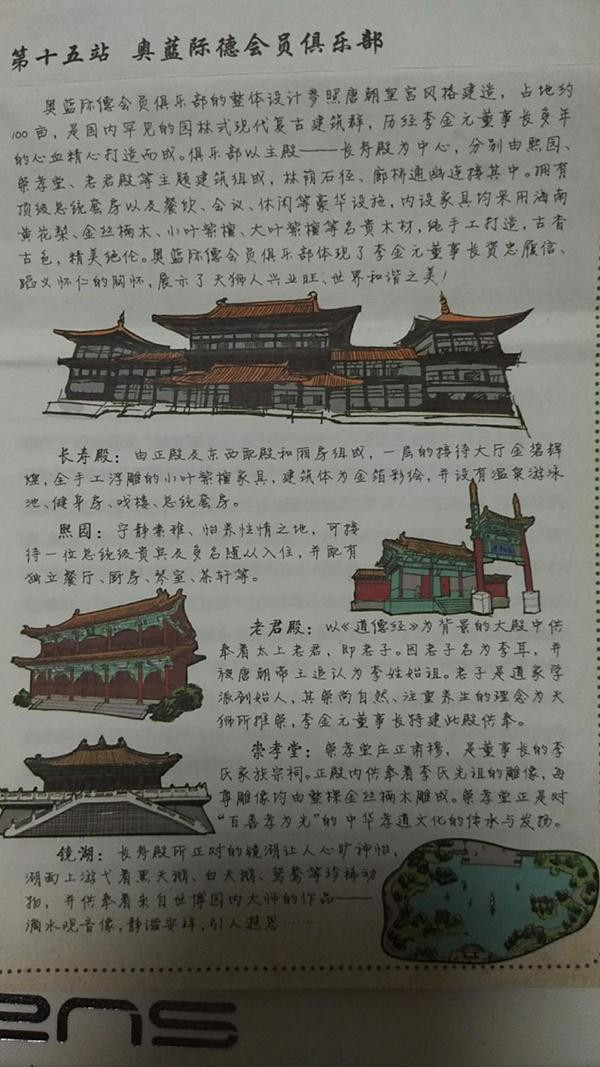 第十五站 奥蓝际德会员俱乐部
奥蓝际德会员俱乐部的整体设计参照唐朝皇宫风格建造，占地约
100亩，是国内罕见的园林式现代复古建筑群，历经李金元董事长多年
的心血精心打造而成。俱乐部以主殿——长寿殿为中心，分别由熙园、
崇孝堂、老君殿等主题建筑组成，林荫石径、廊桥通幽连接其中。拥有
顶级总统套房以及餐饮、会议、休闲等豪华设施，内设家具均采用海南
黄花梨、金丝楠木、小叶紫檀、大叶紫檀等名贵木材，纯手工打造，古香
古色，精美绝伦。奥蓝际德会员俱乐部体现了李金元董事长资忠履信、
蹈义怀仁的胸怀，展示了天狮人兴业旺、世界和谐之美！
长寿殿：由正殿及东西配殿和厢房组成，一层的接待大厅金碧辉
煌，全手工浮雕的小叶紫檀家具，建筑体为金箔彩绘，并设有温泉游泳
池、健身房、戏楼、总统套房。
熙园：宁静素雅、怡养性情之地，可接
待一位总统级贵宾及多名随从入住，并配有
独立餐厅、厨房、琴室、茶轩等。
老君殿：以《道德经》为背景的大殿中供
奉着太上老君，即老子。因老子名为李耳，并
被唐朝帝王追认为李姓始祖。老子是道家学
派创始人，其崇尚自然、注重养生的理念为天
狮所推崇，李金元董事长特建此殿供奉。
崇孝堂：崇孝堂庄正肃穆，是董事长的李
氏家族宗祠。正殿内供奉着李氏先祖的雕像，每
尊雕像均由整棵金丝楠木雕成。崇孝堂正是对
“百善孝为先”的中华孝道文化的传承与发扬。
镜湖：长寿殿所正对的镜湖让人心旷神怡，
湖面上游弋着黑天鹅、白天鹅、鸳鸯等珍稀动
物，并供奉着来自世博园内大师的作品——
滴水观音像，静谧安祥，引人遐思……
ens